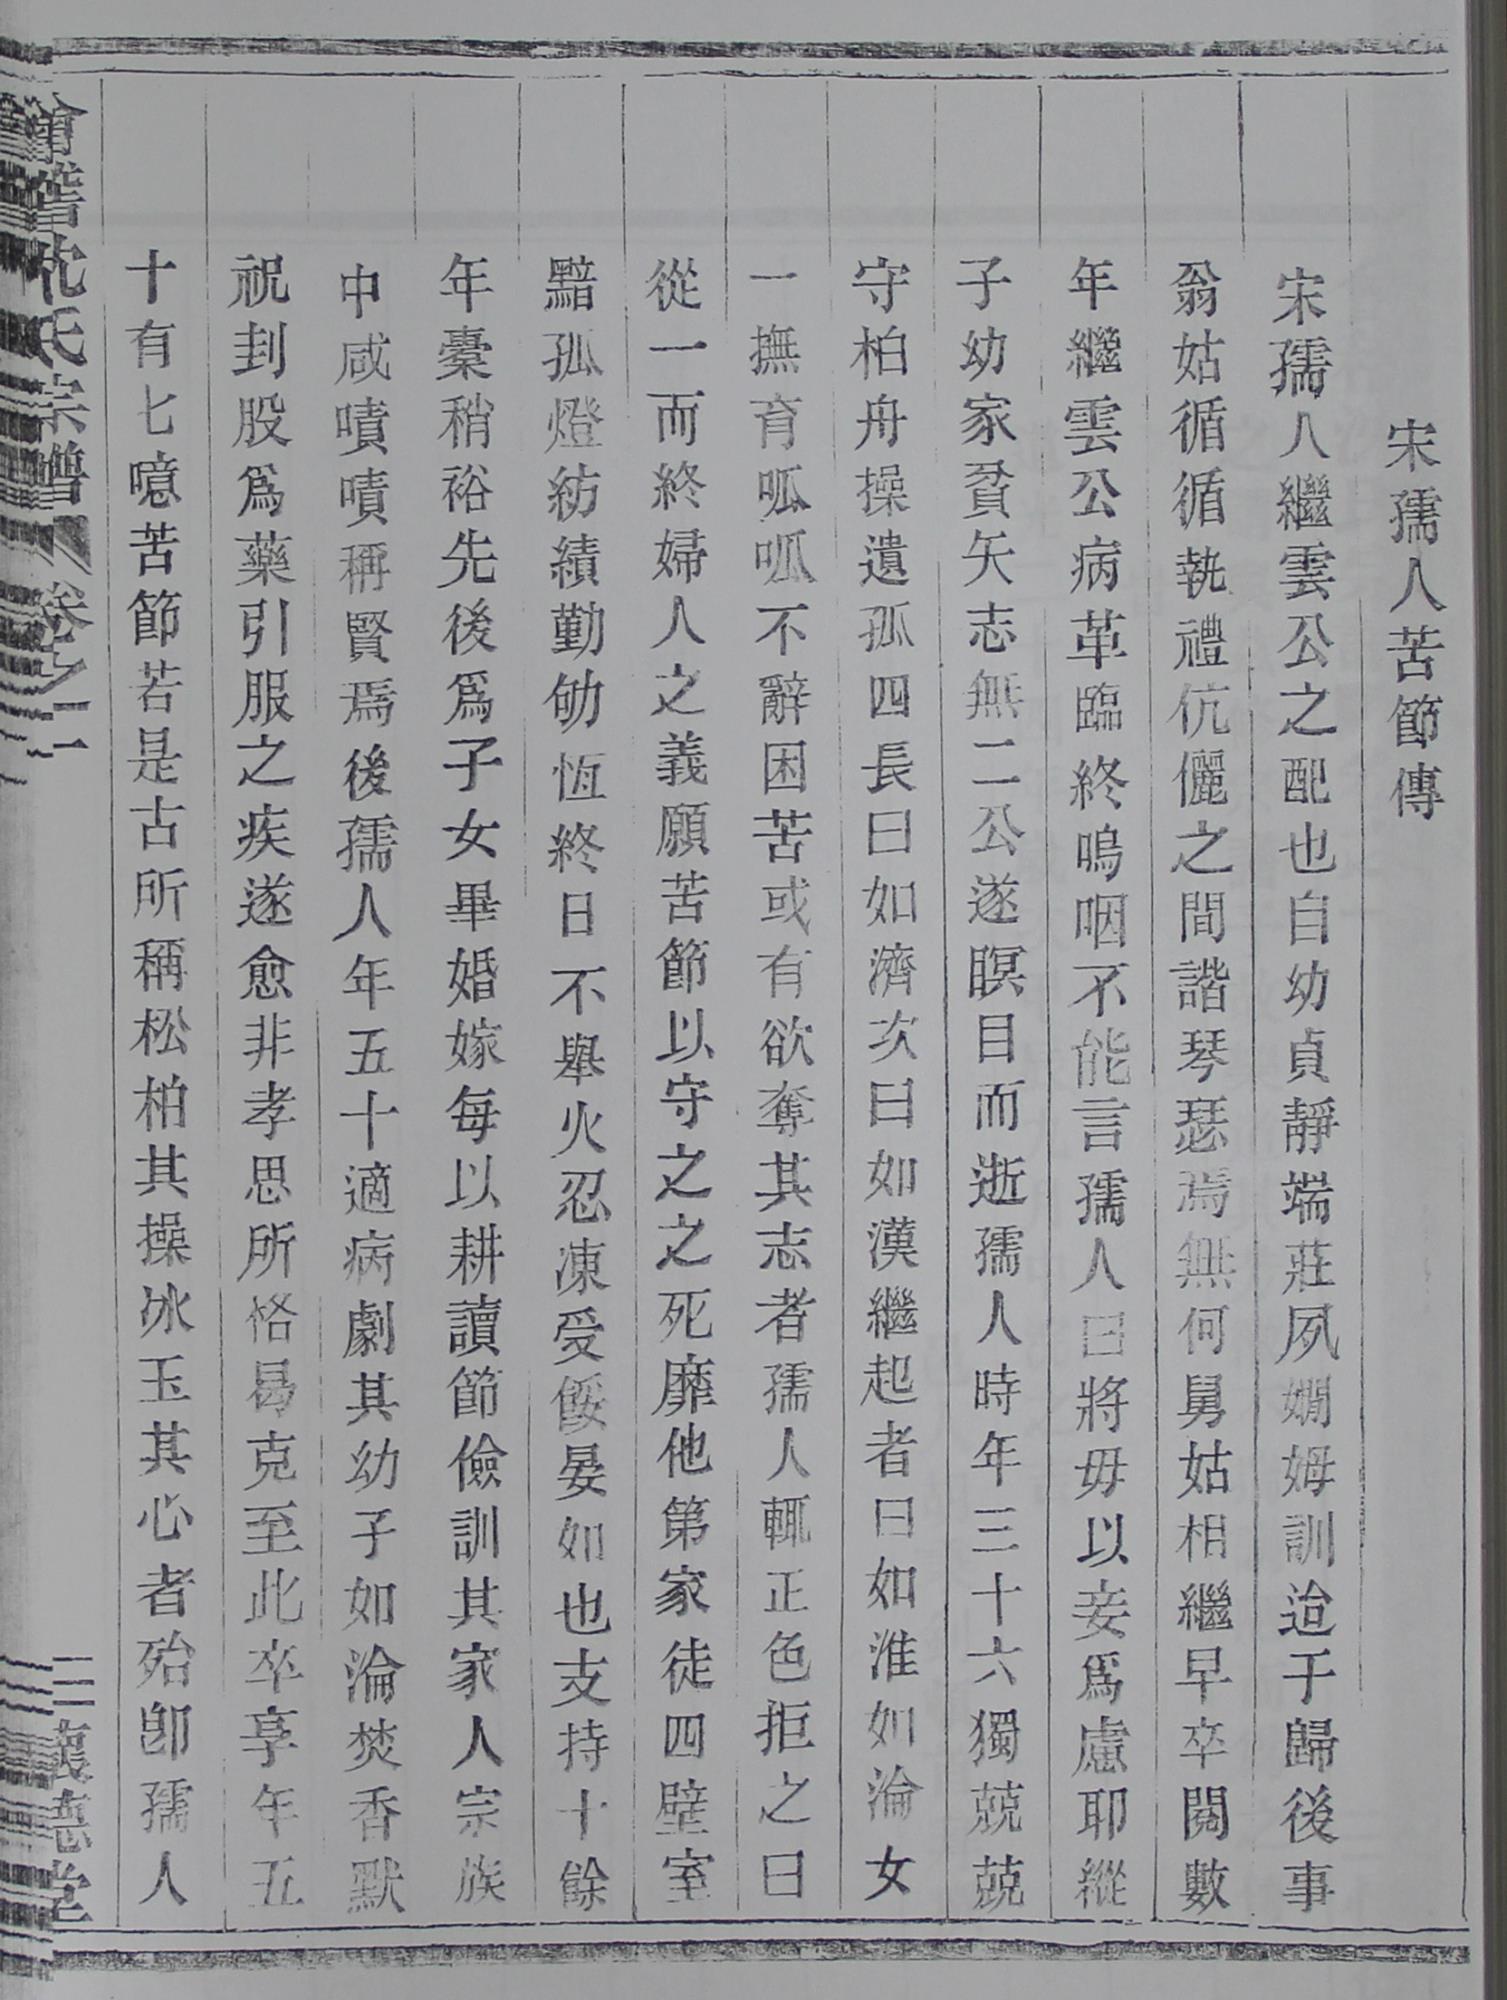 宋孺人苦節傳
宋孺人繼雲公之配也自幼貞靜端莊夙嫺姆訓迨于歸後事
翁姑循循執禮伉儷之間諧琴瑟焉無何舅姑相繼早卒閱數
年繼雲公病革臨終嗚咽不能言孺人曰將毋以妾爲慮耶縱
子幼家貧矢志無二公遂瞑目而逝孺人時年三十六獨兢兢
守柏舟操遺孤四長曰如濟次曰如漢繼起者曰如淮如淪女
一撫育呱呱不辭困苦或有欲奪其志者孺人輒正色拒之曰
從一而終婦人之義願苦節以守之之死靡他第家徒四壁室
黯孤燈紡績勤劬恆終日不舉火忍凍受餒晏如也支持十餘
年橐稍裕先後爲子女畢婚嫁每以耕讀節儉訓其家人宗族
中咸嘖嘖稱賢焉後孺人年五十適病劇其幼子如淪焚香默
祝刲股爲藥引服之疾遂愈非孝思所恪曷克至此卒享年五
十有七噫苦節若是古所稱松柏其操冰玉其心者殆卽孺人
會稽沈氏宗譜 卷之 三 懷德堂